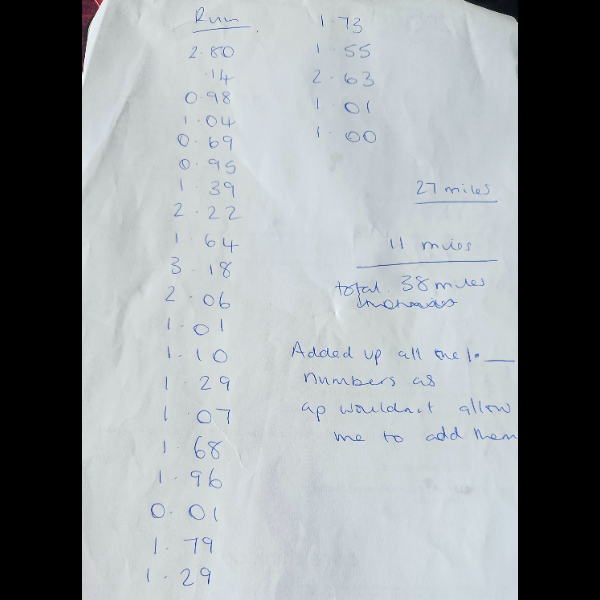 Run
2.80
.14
0.98
1.04
0.69
0.95
1.39
2.22
1.64
3.18
2.06
1.01
1.10
1.29
1.07
1.68
1.96
0.01
1.79
1.29
1.73
1.55
2.63
1.01
1.00
27 miles
11 miles
total. 38 miles
Added up all the 1.
numbers as
ap wouldn't allow
me to add them